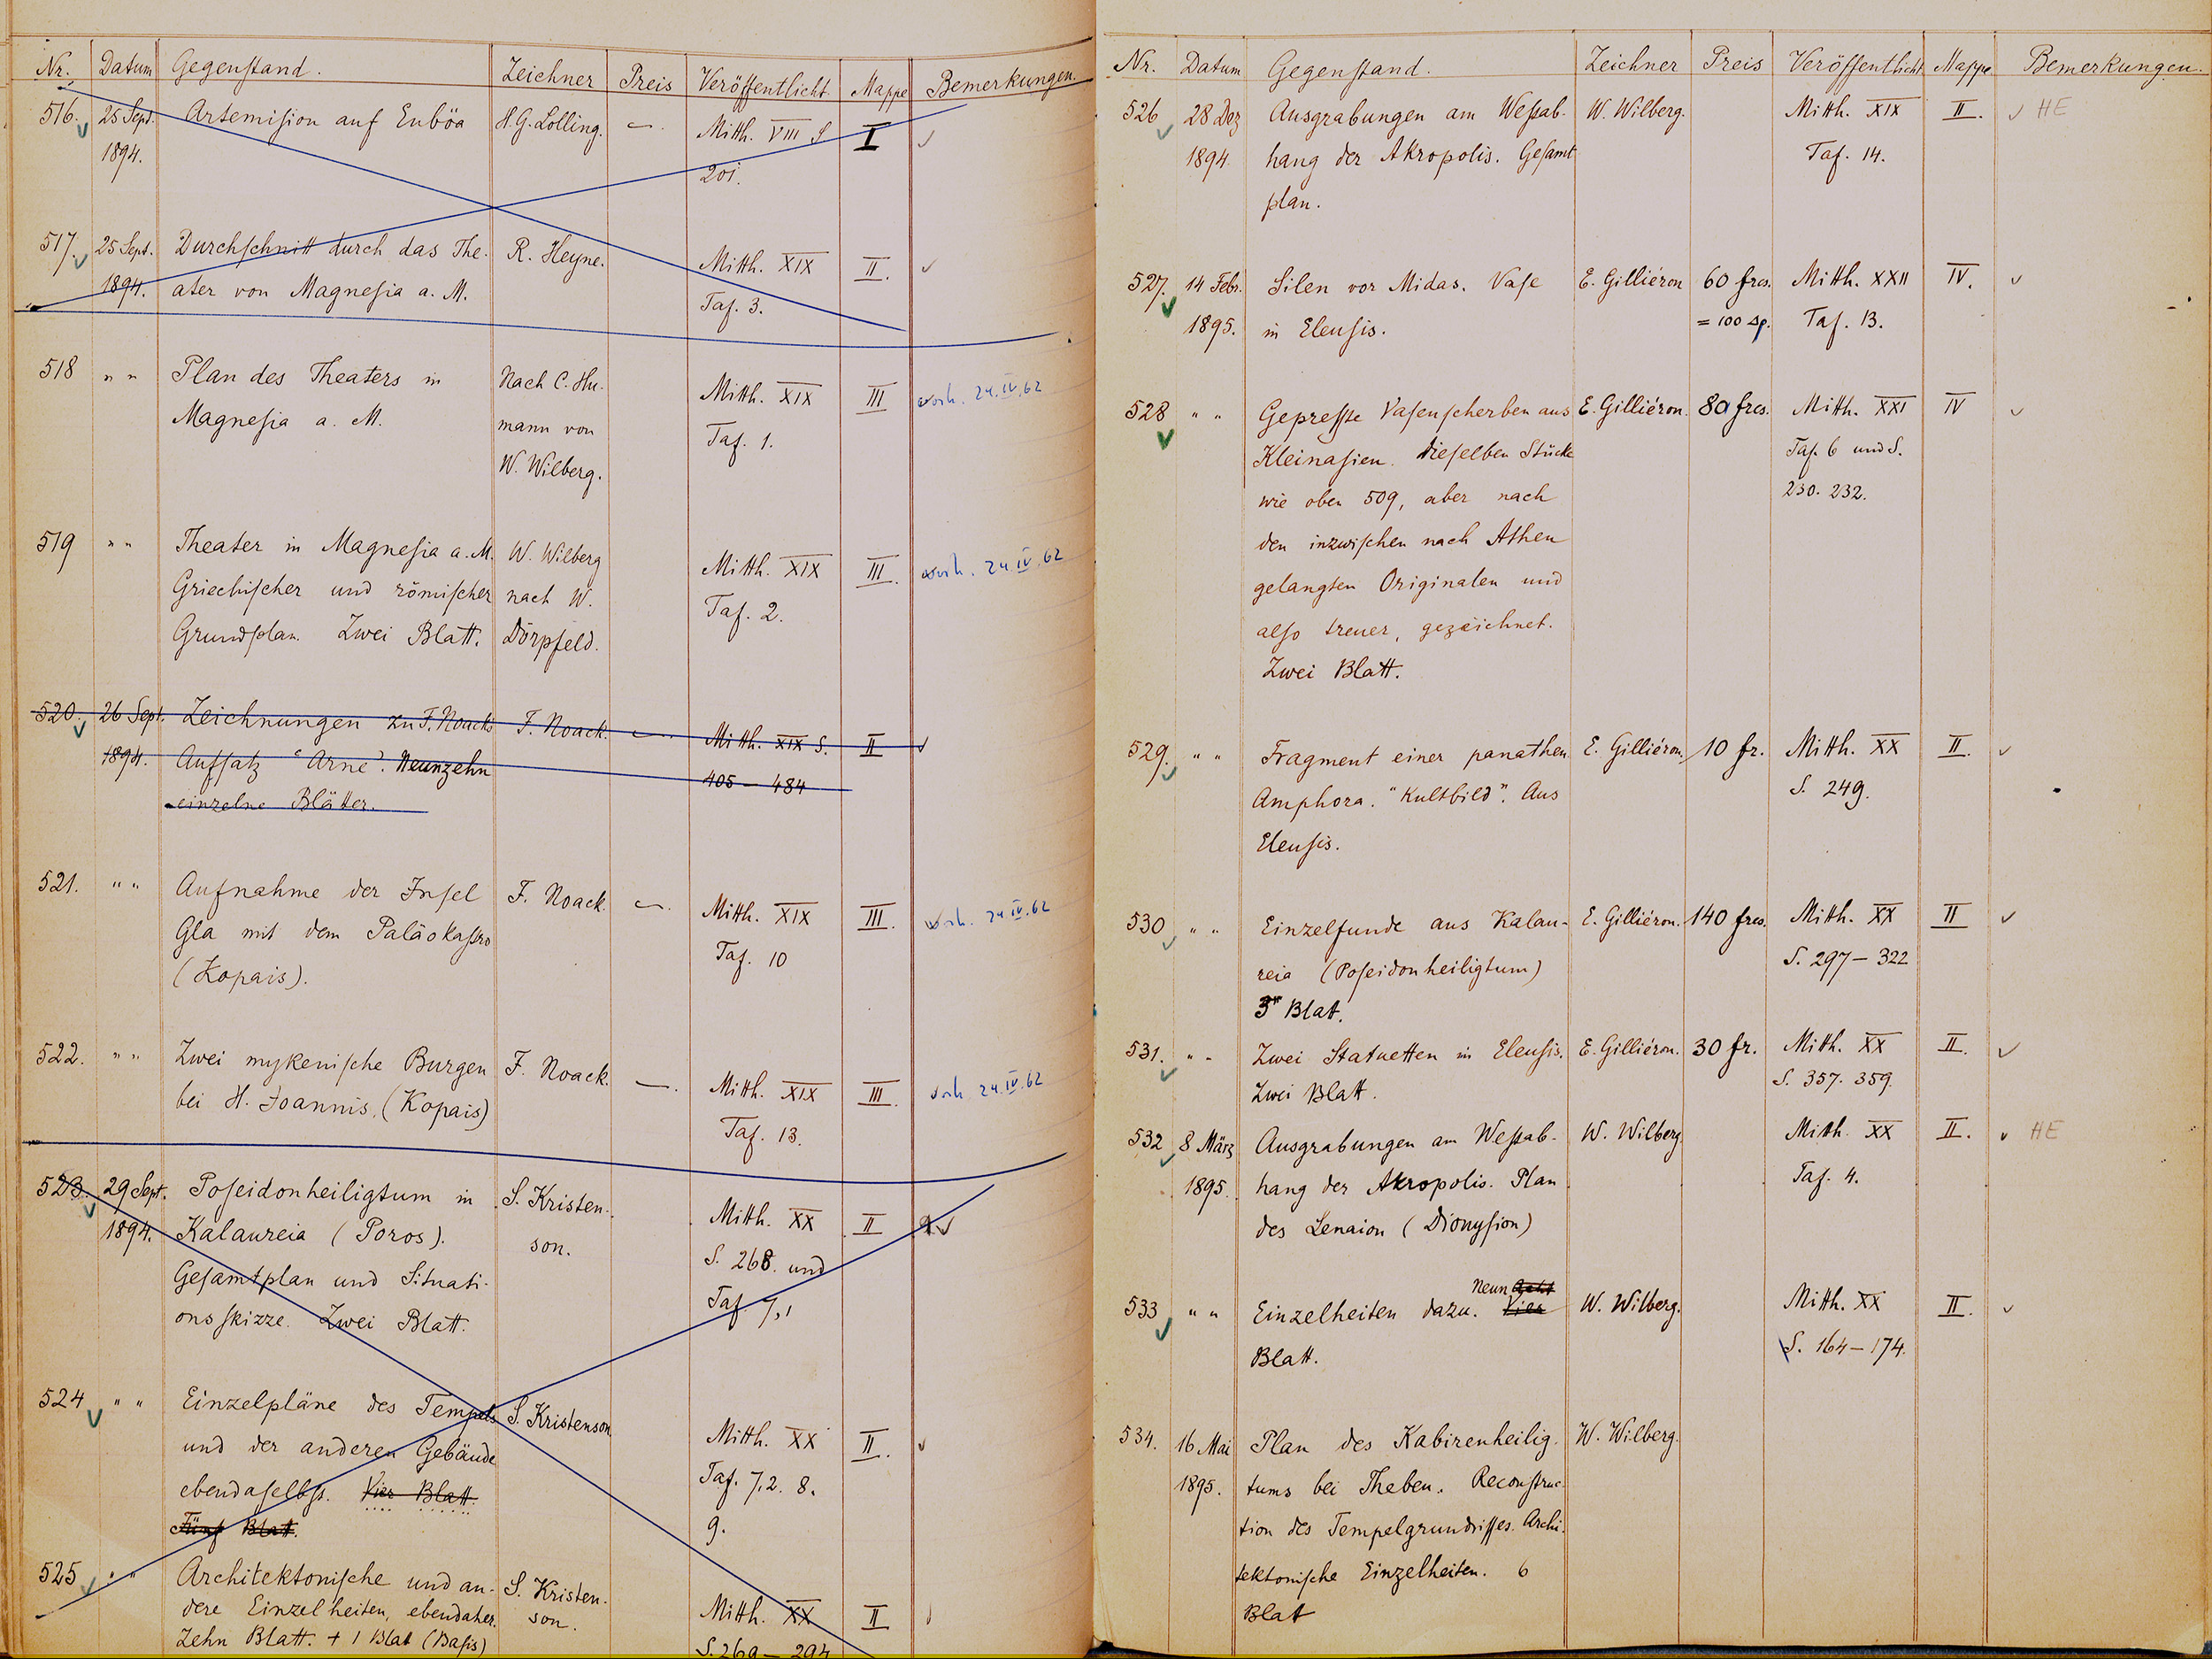 Nr. Datum Gegenstand. Zeichner Preis Veröffentlicht Mappe Bemerkungen.
516. 25 Sept. Artemision auf Euböa H.G. Lolling. —. Mitth. VIII S I ✓
1894. 201.
517. 25 Sept. Durchschnitt durch das The- R. Heyne. Mitth. XIX II. ✓
1894. ater von Magnesia a. M. Taf. 3.
518 " " Plan des Theaters in Nach C. Hu- Mitth. XIX III vorh. 24.IV.62
Magnesia a. M. mann von Taf. 1.
W. Wilberg.
519 " " Theater in Magnesia a. M. W. Wilberg Mitth. XIX III. vorh. 24.IV.62
Griechischer und römischer nach W. Taf. 2.
Grundplan. Zwei Blatt. Dörpfeld.
520. 26 Sept. Zeichnungen zu F. Noacks F. Noack. —. Mitth. XIX S. II ✓
1894. Aufsatz "Arne". Neunzehn 405 – 484
einzelne Blätter.
521. " " Aufnahme der Insel F. Noack. —. Mitth. XIX III. vorh. 24.IV.62
Gla mit dem Paläokastro Taf. 10
(Kopais).
522. " " Zwei mykenische Burgen F. Noack. —. Mitth. XIX III. vorh. 24.IV.62
bei H. Joannis. (Kopais) Taf. 13.
523. 29 Sept. Poseidonheiligtum in S. Kristen- Mitth. XX II ✓
1894. Kalaureia (Poros). son. S. 268. und
Gesamtplan und Situati- Taf. 7,1
onsskizze. Zwei Blatt.
524 " " Einzelpläne des Tempels S. Kristenson Mitth. XX II. ✓
und der anderen Gebäude Taf. 7,2. 8.
ebendaselbst. Vier Blatt. 9.
Fünf Blatt.
525 " " Architektonische und an- S. Kristen- Mitth. XX II
dere Einzelheiten, ebendaher. son. S. 269 – 294
Zehn Blatt. + 1 Blat (Basis)
Nr. Datum Gegenstand. Zeichner Preis Veröffentlicht Mappe Bemerkungen.
526 28 Dez Ausgrabungen am Westab- W. Wilberg. Mitth. XIX II. ✓ HE
1894. hang der Akropolis. Gesamt Taf. 14.
plan.
527. 14 Febr. Silen vor Midas. Vase E. Gilliéron 60 frcs. Mitth. XXII IV. ✓
1895. in Eleusis. = 100 Δρ. Taf. 13.
528 " " Gepresste Vasenscherben aus E. Gilliéron. 80 frcs. Mitth. XXI IV ✓
Kleinasien. Dieselben Stücke Taf. 6 und S.
wie oben 509, aber nach 230. 232.
den inzwischen nach Athen
gelangten Originalen und
also treuer, gezeichnet.
Zwei Blatt.
529. " " Fragment einer panathen. E. Gilliéron. 10 fr. Mitth. XX II. ✓
Amphora. "Kultbild". Aus S. 249.
Eleusis.
530 " " Einzelfunde aus Kalau- E. Gilliéron. 140 frcs. Mitth. XX II ✓
reia (Poseidonheiligtum) S. 297 – 322
Blat.
531. " " Zwei Statuetten in Eleusis. E. Gilliéron. 30 fr. Mitth. XX II. ✓
Zwei Blatt. S. 357. 359.
532 8 März Ausgrabungen am Westab- W. Wilberg Mitth. XX II. ✓ HE
1895. hang der Akropolis. Plan Taf. 4.
des Lenaion (Dionysion)
Neun Acht
533 " " Einzelheiten dazu. Vier W. Wilberg. Mitth. XX II. ✓
Blatt. S. 164 – 174.
534. 16 Mai Plan des Kabirenheilig- W. Wilberg.
1895. tums bei Theben. Reconstruc-
tion des Tempelgrundrisses. Archi-
tektonische Einzelheiten. 6
Blat